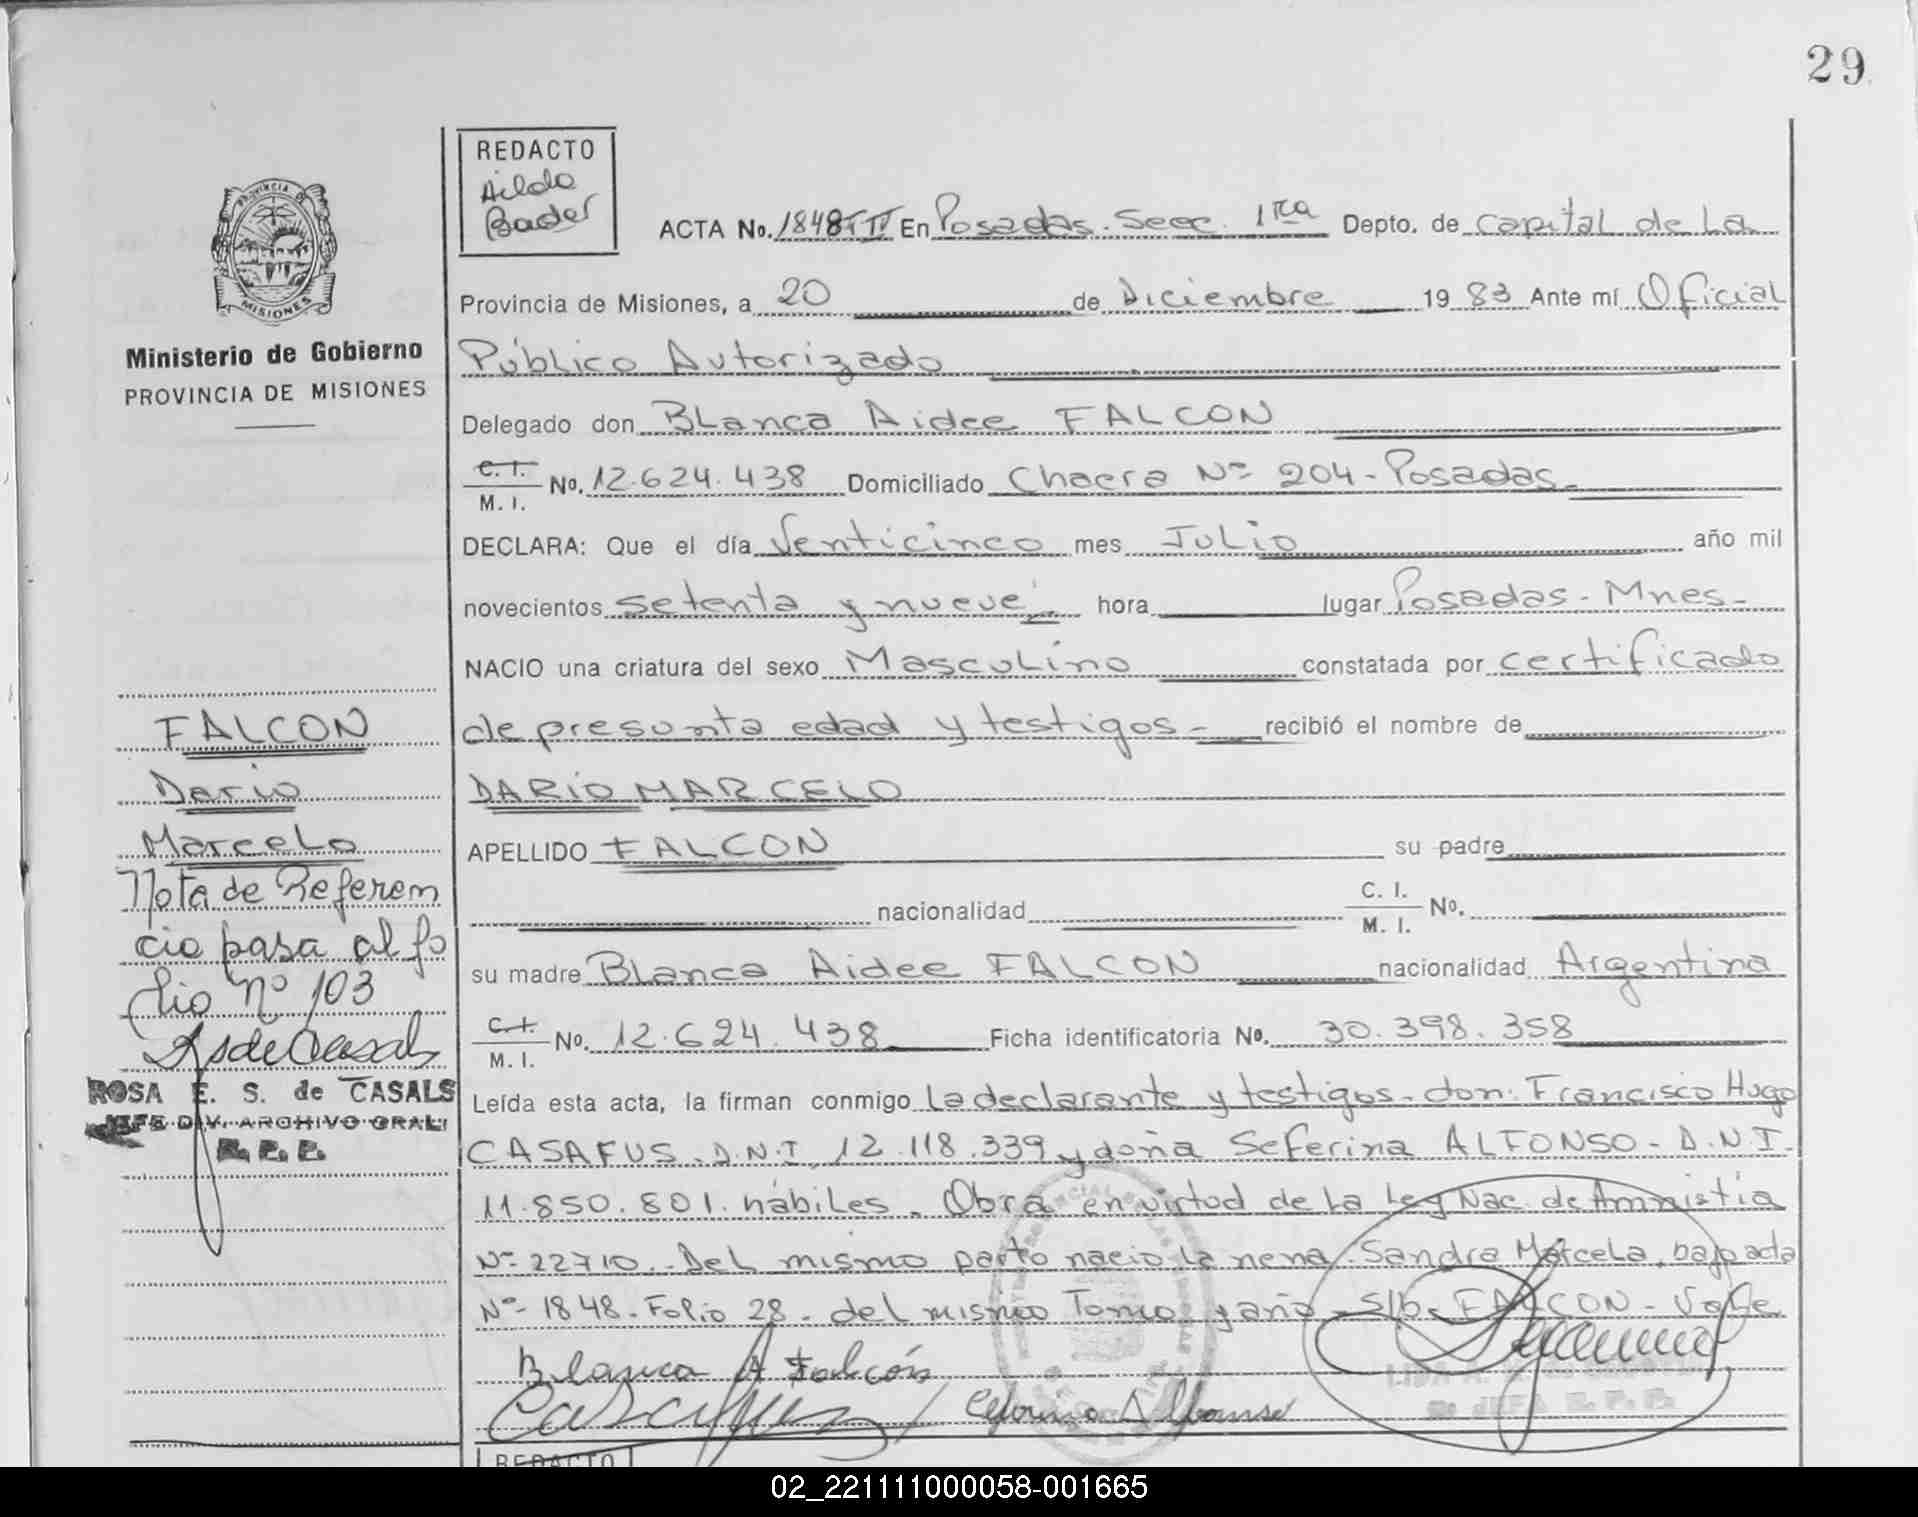 29
REDACTO
Aildo
Bader
PROVINCIA DE
MISIONES
Ministerio de Gobierno
PROVINCIA DE MISIONES
ACTA No. 1848 En Posadas. Secc. 1ra Depto. de Capital de La
Provincia de Misiones, a 20 de Diciembre 1983 Ante mí Oficial
Público Autorizado
Delegado don Blanca Aidee FALCON
C. I.
M. I. No. 12.624.438 Domiciliado Chacra Nº 204 - Posadas.
DECLARA: Que el día Venticinco mes Julio año mil
novecientos setenta y nueve hora lugar Posadas - Mnes -
NACIO una criatura del sexo Masculino constatada por certificado
de presunta edad y testigos - recibió el nombre de
DARIO MARCELO
APELLIDO FALCON su padre
nacionalidad C. I.
M. I. No.
su madre Blanca Aidee FALCON nacionalidad Argentina
C. I.
M. I. No. 12.624.438 Ficha identificatoria No. 30.398.358
Leída esta acta, la firman conmigo La declarante y testigos - don: Francisco Hugo
CASAFUS. D.N.I. 12.118.339 y doña Seferina ALFONSO - D.N.I.
11.850.801. hábiles. Obra en virtud de la Ley Nac. de Amnistía
Nº 22710. Del mismo parto nacio la nena. Sandra Marcela, bajo acta
Nº 1848 - Folio 28 - del mismo Tomo y año - s/b. FALCON - Vale
Blanca A Falcón
FALCON
Dario
Marcelo
Nota de Referen
cia pasa al fo
lio nº 103
ROSA E. S. de CASALS
JEFE DIV. ARCHIVO GRAL.
R. P. P.
REDACTO
02_221111000058-001665